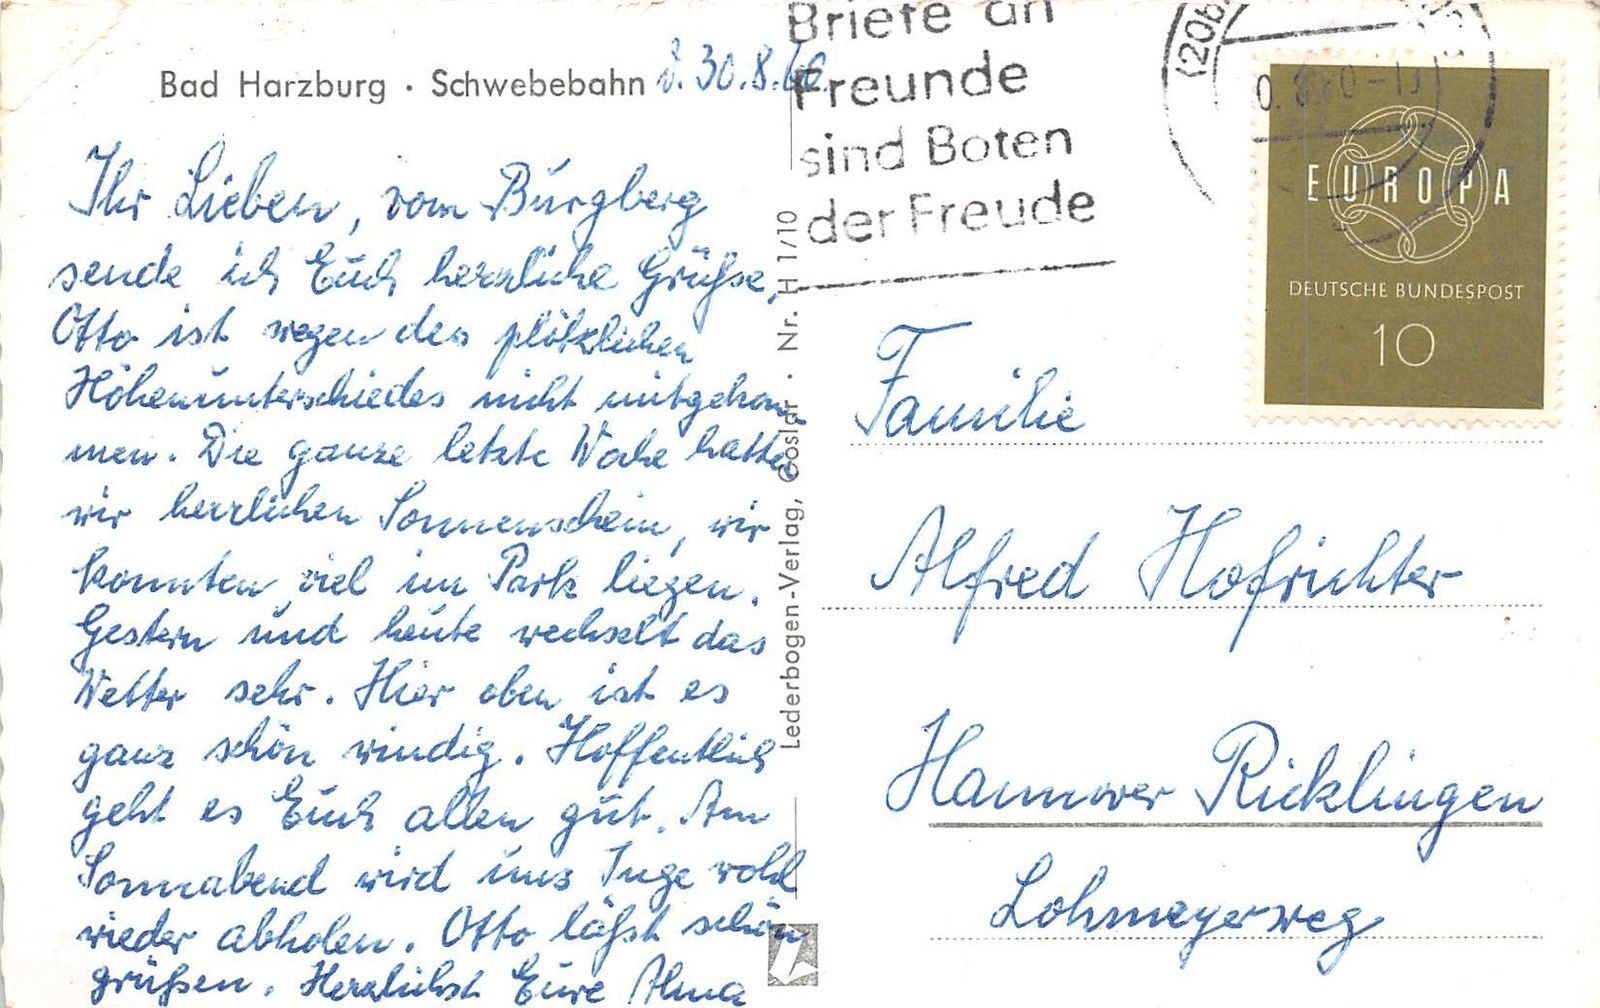 Bad Harzburg · Schwebebahn d. 30.8.60.
Ihr Lieben, vom Burgberg
sende ich Euch herzliche Grüße,
Otto ist wegen des plötzlichen
Höhenunterschiedes nicht mitgekom
men. Die ganze letzte Woche hatten
wir herrlichen Sonnenschein, wir
konnten viel im Park liegen.
Gestern und heute wechselt das
Wetter sehr. Hier oben ist es
ganz schön windig. Hoffentlich
geht es Euch allen gut. Am
Sonnabend wird uns Inge wohl
wieder abholen. Otto läßt schön
grüßen. Herzlichst Eure Alma
Lederbogen-Verlag, Goslar · Nr. H 1/10
Briefe an
Freunde
sind Boten
der Freude
(20b
0.8.60-1
EUROPA
DEUTSCHE BUNDESPOST
10
Familie
Alfred Hofrichter
Hannover Ricklingen
Lohmeyerweg